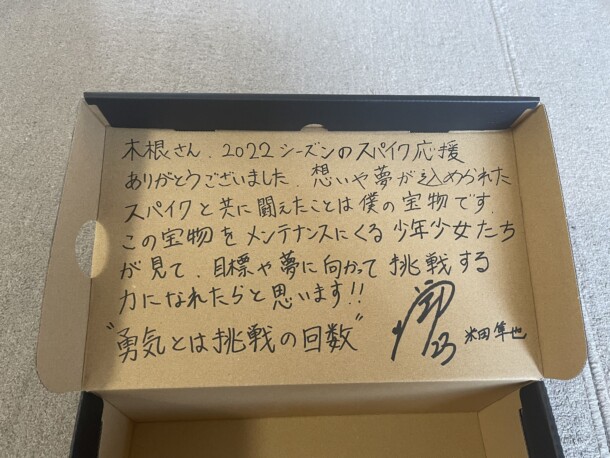 木根さん、2022シーズンのスパイク応援
ありがとうございました。想いや夢が込められた
スパイクと共に闘えたことは僕の宝物です。
この宝物をメンテナンスにくる少年少女たち
が見て、目標や夢に向かって挑戦する
力になれたらと思います!!
"勇気とは挑戦の回数"
23 米田隼也